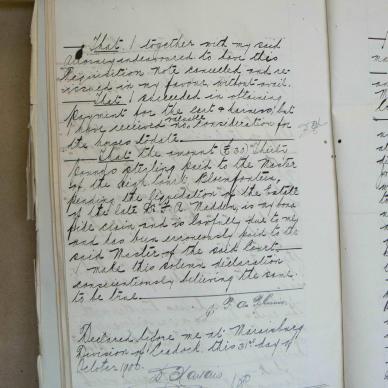 That I together with my said
Attorney endeavoured to have this
Requisition Note cancelled and re-
issued in my favour without avail.
That I succeeded in obtaining
payment for the cart & harness, but
I have received no valuable consideration for
the horses to date.
That the amount (£30) Thirty
Pounds sterling paid to the Master
of the High Court, Bloemfontein,
pending the liquidation of the Estate
of the late A. Madden, is my bona
fide claim and is lawfully due to me
and has been erroneously paid to the
said Master of the said Court.
I make this solemn declaration
conscientiously believing the same
to be true.
Declared before me at Maraisburg
Division of Cradock, this 31st day of
October 190